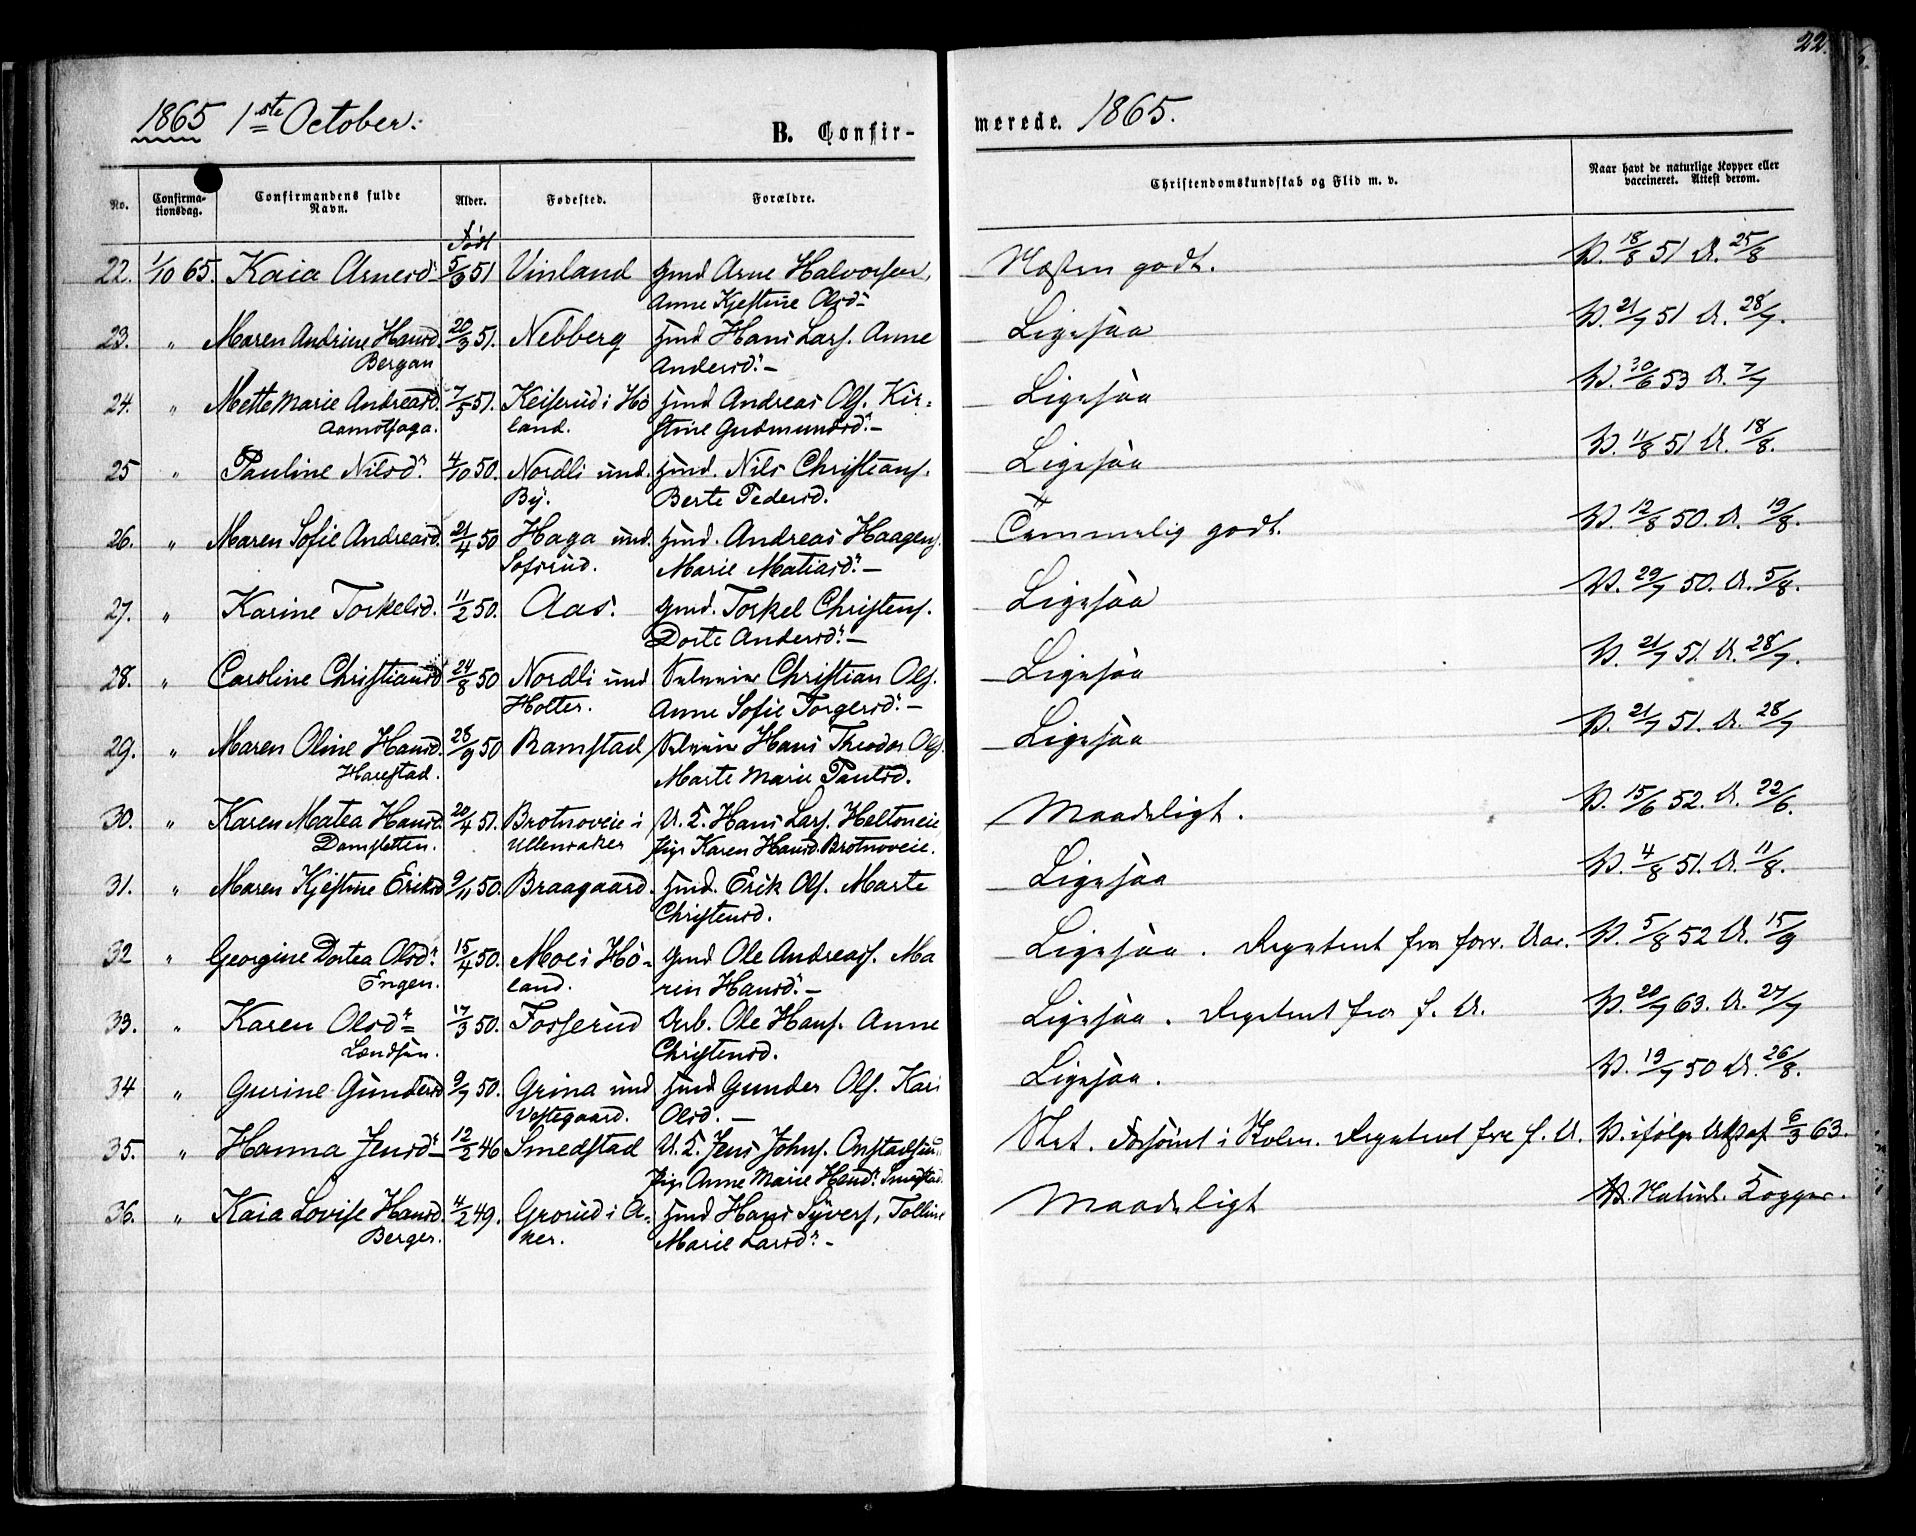 22.
1865 1ste October.
B. Confir-
merede. 1865.
No. Confirma-tionsdag. Confirmandens fulde Navn. Alder. Fødested. Forældre. Christendomskundskab og Flid m. v. Naar havt de naturlige Kopper eller vaccineret. Attest derom.
Født
22. 1/10 65. Kaia Arnesd. 5/9 51 Vinland Gmd Arne Halvorsen, Næsten godt. V. 18/8 51 A. 25/8
Anne Kjestine Olsd.
23. " Maren Andrine Hansd. 20/3 51. Nebberg Hmd Hans Lars. Anne Ligesaa V. 21/7 51 A. 28/7.
Bergan Andersd. —
24. " Mette Marie Andreasd. 7/5 51. Keiserud i Hö Hmd Andreas Ols. Kir- Ligesaa V. 30/6 53 A. 7/7
land. stine Gudmundsd. —
25 " Pauline Nilsd. 4/10 50. Nordli und. Hmd. Nils Christians. Ligesaa V. 11/8 51 A. 18/8.
By. Berte Pedersd.
26. " Maren Sofie Andreasd. 21/4 50 Haga und. Hmd. Andreas Haagens. Temmelig godt. V. 12/8 50. A. 19/8.
Sofsrud. Marie Matiasd. —
27. " Karine Torkelsd. 11/2 50. Aas. Gmd. Torkel Christens. Ligesaa V. 29/7 50. A. 5/8.
Dorte Andersd. —
28. " Caroline Christiansd 24/8 50 Nordli und Selveier Christian Ols. Ligesaa V. 21/7 51. A. 28/7.
Holter. Anne Sofie Torgersd. —
29. " Maren Oline Hansd. 28/9 50 Ramstad Selveier Hans Theodor Ols. Ligesaa V. 21/7 51. A. 28/7
Harestad. Marte Marie Paulsd.
30. " Karen Matea Hansd. 20/4 51. Brotnoveie i U. E. Hans Lars. Heltoneie Maadeligt. V. 15/6 52. A. 22/6.
Damsletten. Ullensaker Pige Karen Hansd. Brotnoveie.
31. " Maren Kjestine Eriksd 9/11 50. Braagaard. Hmd. Erik Ols. Marte Ligesaa V. 4/8 51. A. 11/8.
Christensd.
32 " Georgine Dortea Olsd. 15/4 50. Moe i Hö- Gmd Ole Andreass. Ma Ligesaa. Repetent fra forr. Aar. V. 5/8 52 A. 15/9
Engen. land. rin Hansd. —
33. " Karen Olsd. 17/3 50. Fosserud Arb. Ole Hans. Anne Ligesaa. Repetent fra f. A. V. 20/7 63. A. 27/7
Christensd.
34 " Gurine Gundersd 9/7 50. Grina und Hmd Gunder Ols. Kari Ligesaa. V. 19/7 50 A. 26/8.
Vestegaard. Olsd. —
35. " Hanna Jensd. 12/2 46 Smedstad U. E. Jens Johns. Slet. Forsömt i Skolen. Repetent fra f. A. V. ifölge Attest af 6/3 63.
Pige Anne Marie Hansd. Smedstad.
36. " Kaia Lovise Hansd. 4/2 49. Grorud i A- Hmd Hans Syvers, Maadeligt Naturl. Kopper.
Berger. ker. Marie Larsd. —